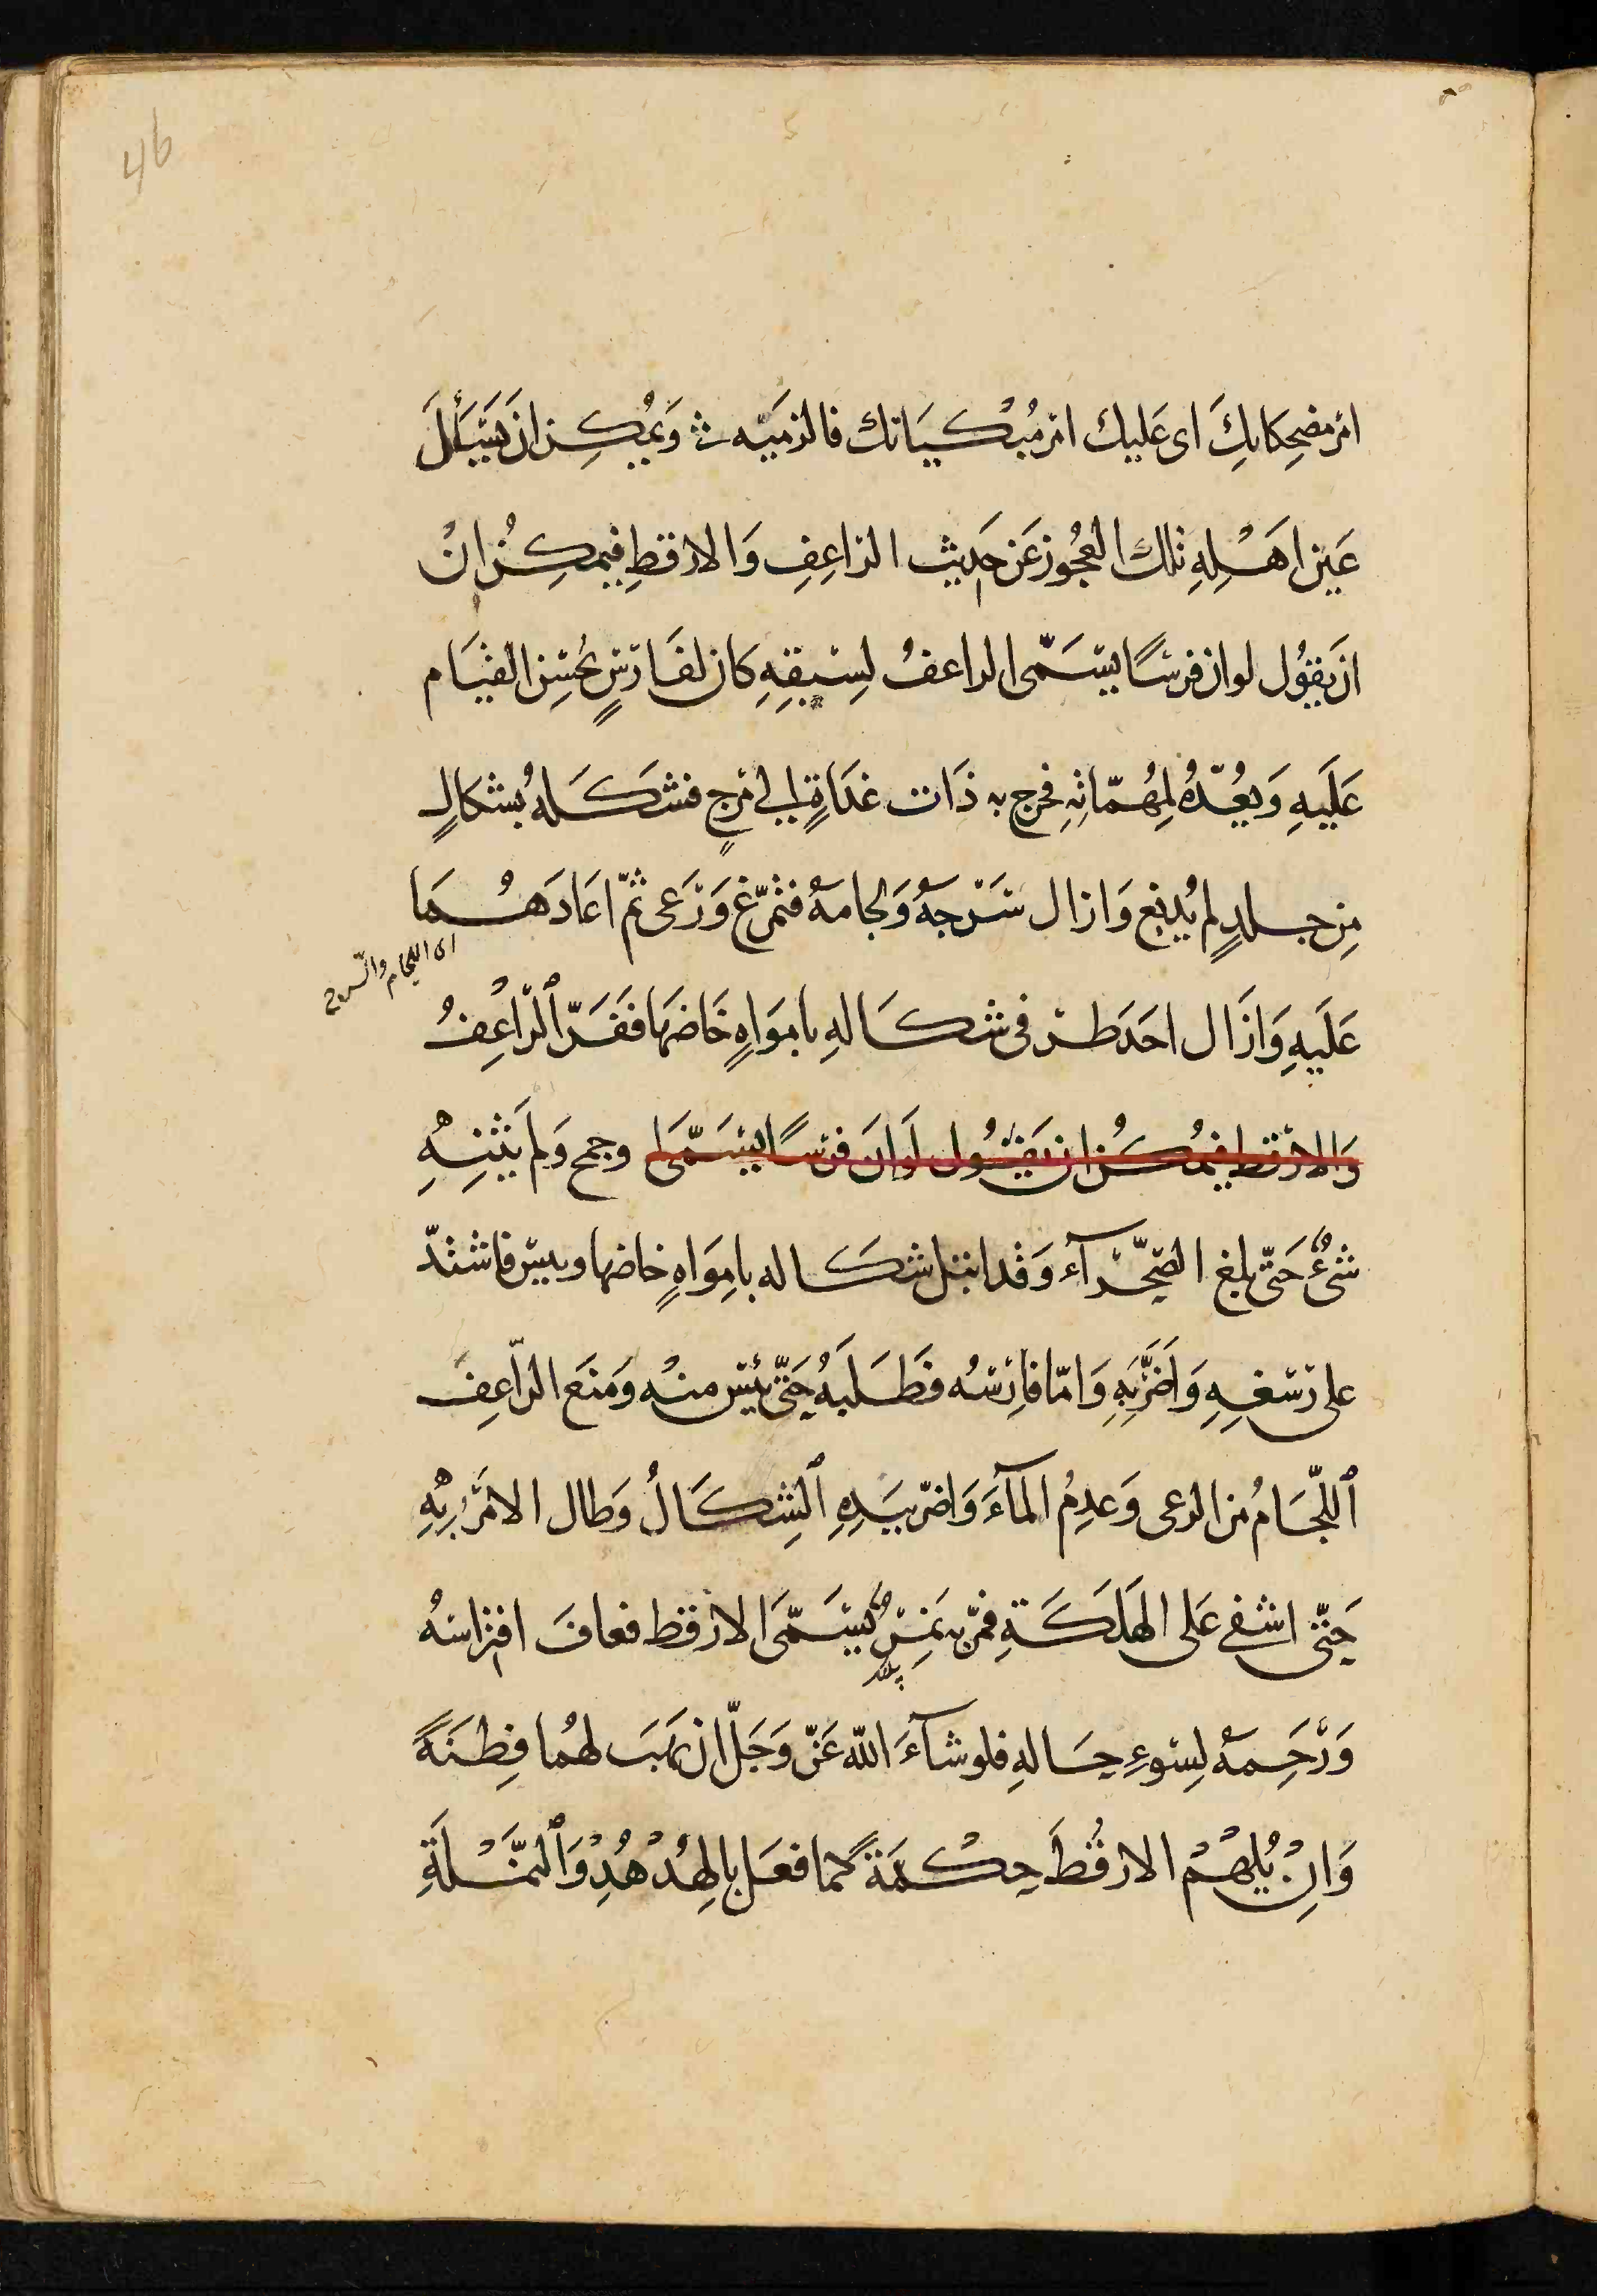 46
امر مضحكاتكِ اى عَليك امر مُبْكيَاتك فالزميَه ؞ وَيُمكِن ان يَسْئَلَ
عَين اهْلِهِ تلك العجُوز عَن حَديث الراعِفِ وَالارقطِ فيمكِنُ انْ
ان يَقُول لو ان فرسًا يسَمّى الراعفُ لِسَبقِهِ كان لفَارسٍ يحُسِن القيَام
عَلَيهِ وَيعُدّهُ لِمُهمّاتِهِ فخرج به ذَات غدَاةٍ الى مَرجٍ فشكَلهُ بشكالٍ
مِن جلدٍ لم يُدبغ وَازال سَرْجهُ وَلجامهُ فتمرّغ وَرَعى ثمّ اعَادَهُمَا
اى اللجام والسرج
عَلَيهِ وَازَال احَدَ طرفى شكَالهِ بامَواهٍ خَاضهَا فَفَرّ ٱلرّاعِفُ
وَالارْقط فيمُكنُ ان يَقُول لَو انَ فرْسًا يسَمّى ا وجمح وَلم يَثنِهِ
شىْءٌ حَتّى بلغ الصّحْرآء وَقد ابتل شكَاله بامِوَاهٍ خاضها ويبس فاشتدّ
على رسْغهِ وَاضَرَّ بِهِ وَامّا فارسُه فَطَلَبهُ حَتّى يئس منهُ ومَنَع الرّاعِفَ
ٱللّجَامُ من الرعى وَعدِمُ المآءَ وَاضرّ بيَدِهِ ٱلشِكَالُ وَطال الامْرُ بِهِ
حَتّى اشفى عَلى الهَلَكَةِ فمرّ به نمرٌ يُسَمّى الارقط فعافَ افتراسَهُ
وَرَحِمهُ لِسُوءِ حَالهِ فلو شآءَ اللّه عَزّ وَجَلّ ان يَهَبَ لهُما فِطنَةً
وَانْ يُلهِمْ الارقُطَ حِكْمَةً كما فعَل بالهُدْهُدِ وَٱلنّمْلَةِ